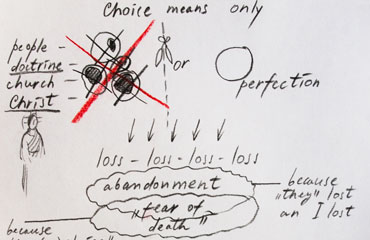 Choice means only
people -
doctrine =
church -
Christ -
or
perfection
loss - loss - loss - loss
abandonment
"fear of death"
because
"they" lost
an I lost
because